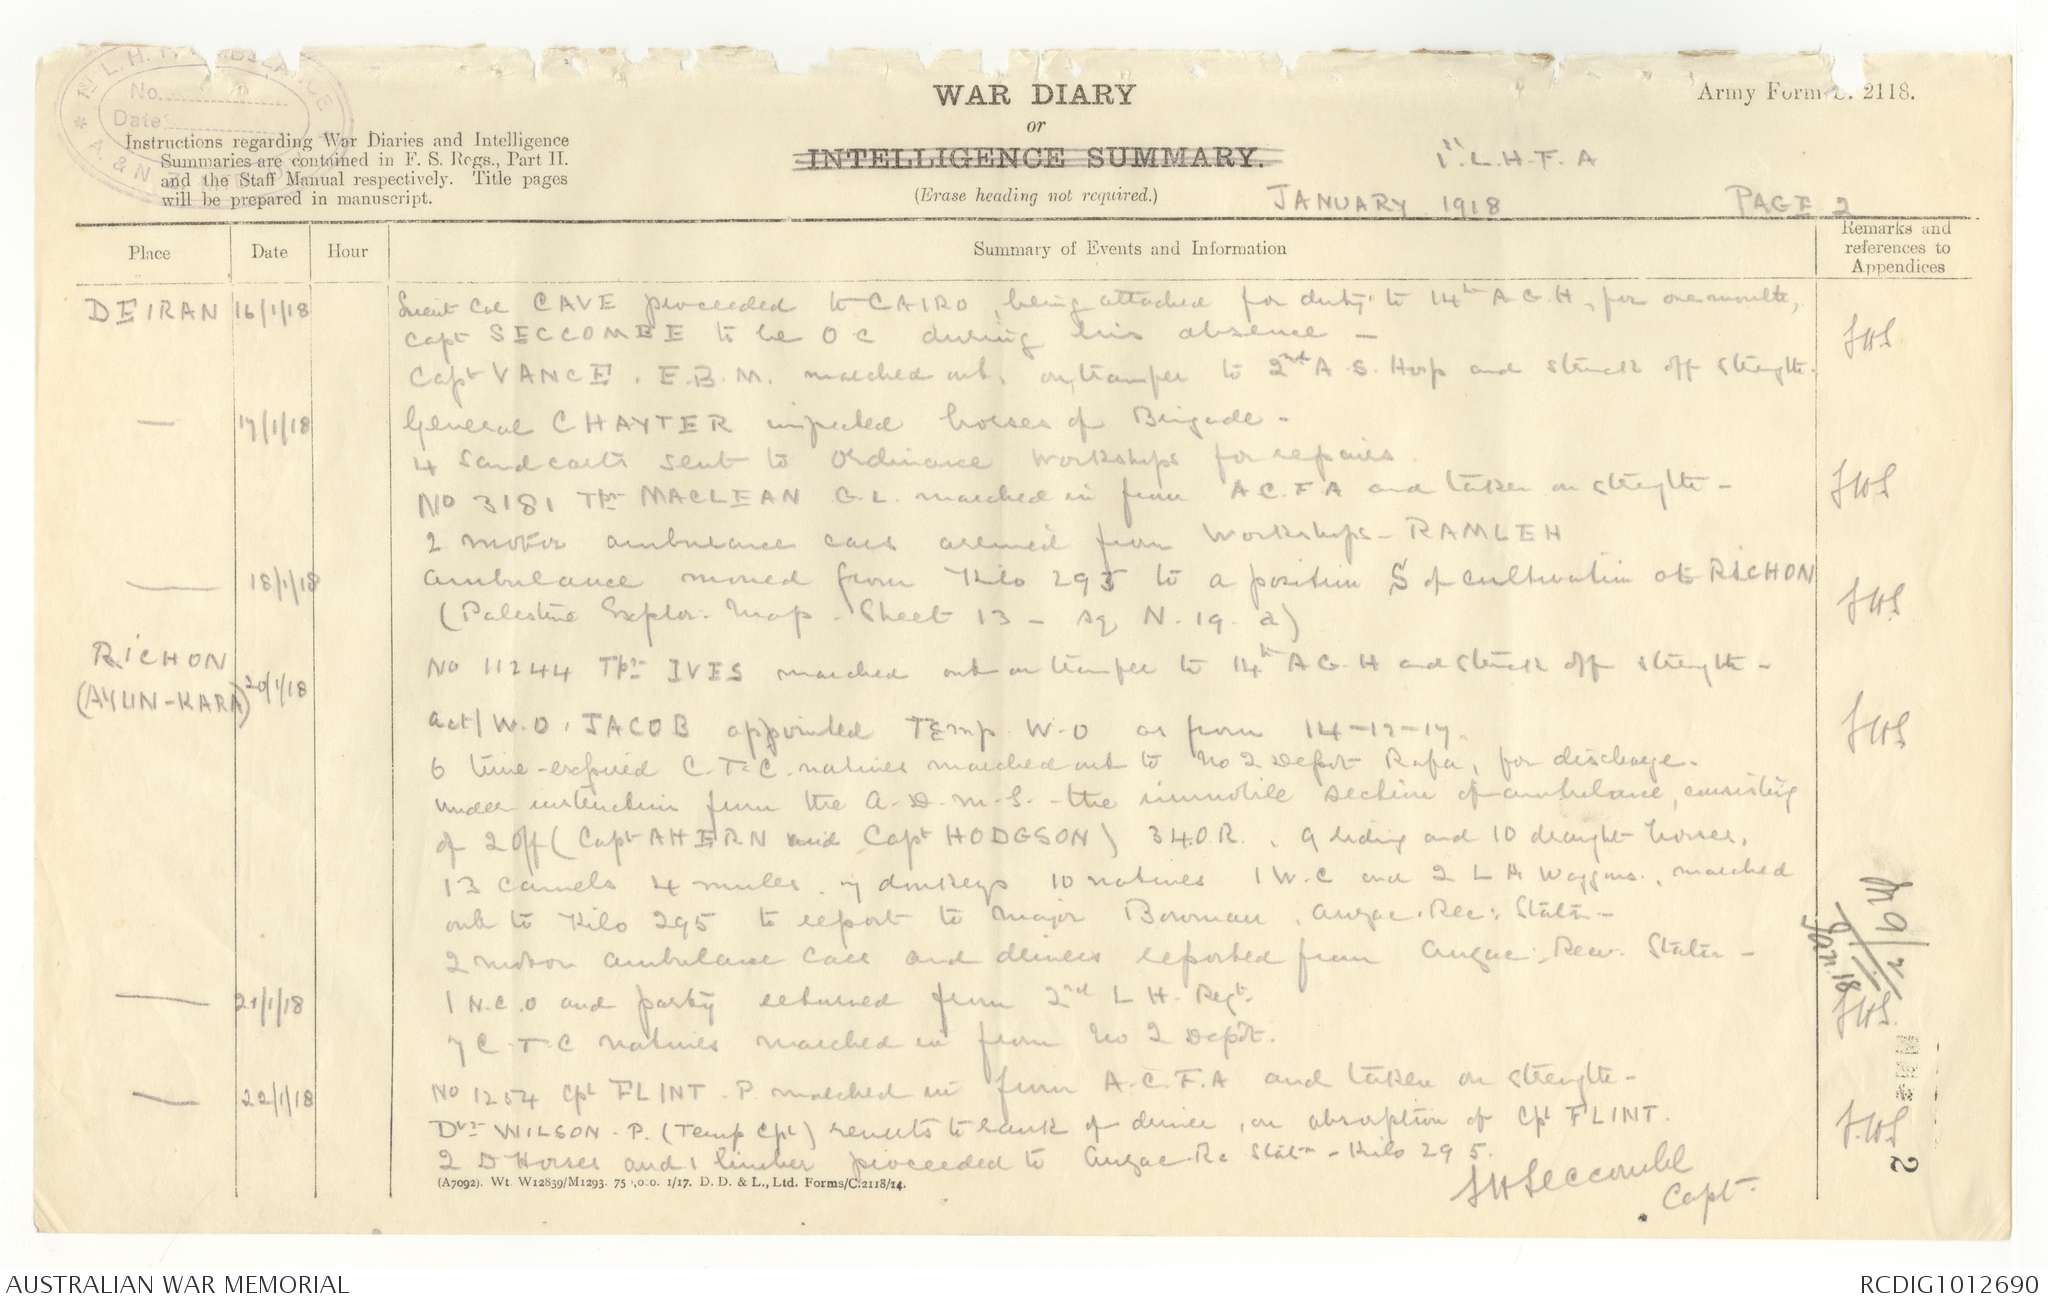 WAR DIARY
or
INTELLIGENCE SUMMARY.
(Erase heading not required.)
Army Form C. 2118.
No.
Date
Instructions regarding War Diaries and Intelligence
Summaries are contained in F. S. Regs., Part II.
and the Staff Manual respectively. Title pages
will be prepared in manuscript.
1st L.H.F.A
JANUARY 1918 PAGE 2
Place Date Hour Summary of Events and Information Remarks and references to Appendices
DEIRAN 16/1/18 Lieut Col CAVE proceeded to CAIRO, being attached for duty to 14th A.G.H, for one month,
Capt SECCOMBE to be OC during his absence - SHS
Capt VANCE. E.B.M. marched out, on transfer to 2nd A.S. Hosp and struck off strength.
— 17/1/18 General CHAYTER inspected horses of Brigade -
4 Sandcarts sent to Ordinance Workshops for repairs.
No 3181 Tpr MACLEAN G.L. marched in from A.C.F.A and taken on strength - SHS
2 motor ambulance cars arrived from Workshops - RAMLEH
— 18/1/18 Ambulance moved from Kilo 295 to a position S of cultivation at RICHON SHS
(Palestine Explor. Map - Sheet 13 - Sq N. 19. a)
RICHON
(AYUN-KARA) 20/1/18 No 11244 Tpr IVES marched out on transfer to 14th A.G.H and struck off strength -
Act/W.O. JACOB appointed Temp W.O as from 14-12-17. SHS
6 time-expired C.T.C. natives marched out to No 2 Depot Rafa, for discharge.
Under instruction from the A.D.M.S. - the immobile section of ambulance, consisting
of 2 Off (Capt AHERN and Capt HODGSON) 34 O.R., 9 riding and 10 draught horses,
13 camels 4 mules. 7 donkeys 10 natives 1 W.C and 2 L A Waggons., marched
out to Kilo 295 to report to Major Bowman, Anzac. Rec: Statn -
2 motor ambulance cars and drivers reported from Anzac. Recv. Statn -
— 21/1/18 1 N.C.O and party returned from 2nd L H. Regt. SHS
7 C.T.C natives marched in from No 2 Depot.
— 22/1/18 No 1254 Cpl FLINT. P. marched in from A.C.F.A and taken on strength -
Dvr WILSON. P. (Temp Cpl) reverts to rank of driver, on absorption of Cpl FLINT. SHS
2 D Horses and 1 limber proceeded to Anzac Rc Statn - Kilo 295.
SHSeccombe
Capt.
Jan. 18
2
(A7092). Wt. W12839/M1293. 75 ,0.0. 1/17. D. D. & L., Ltd. Forms/C.2118/14.
AUSTRALIAN WAR MEMORIAL RCDIG1012690